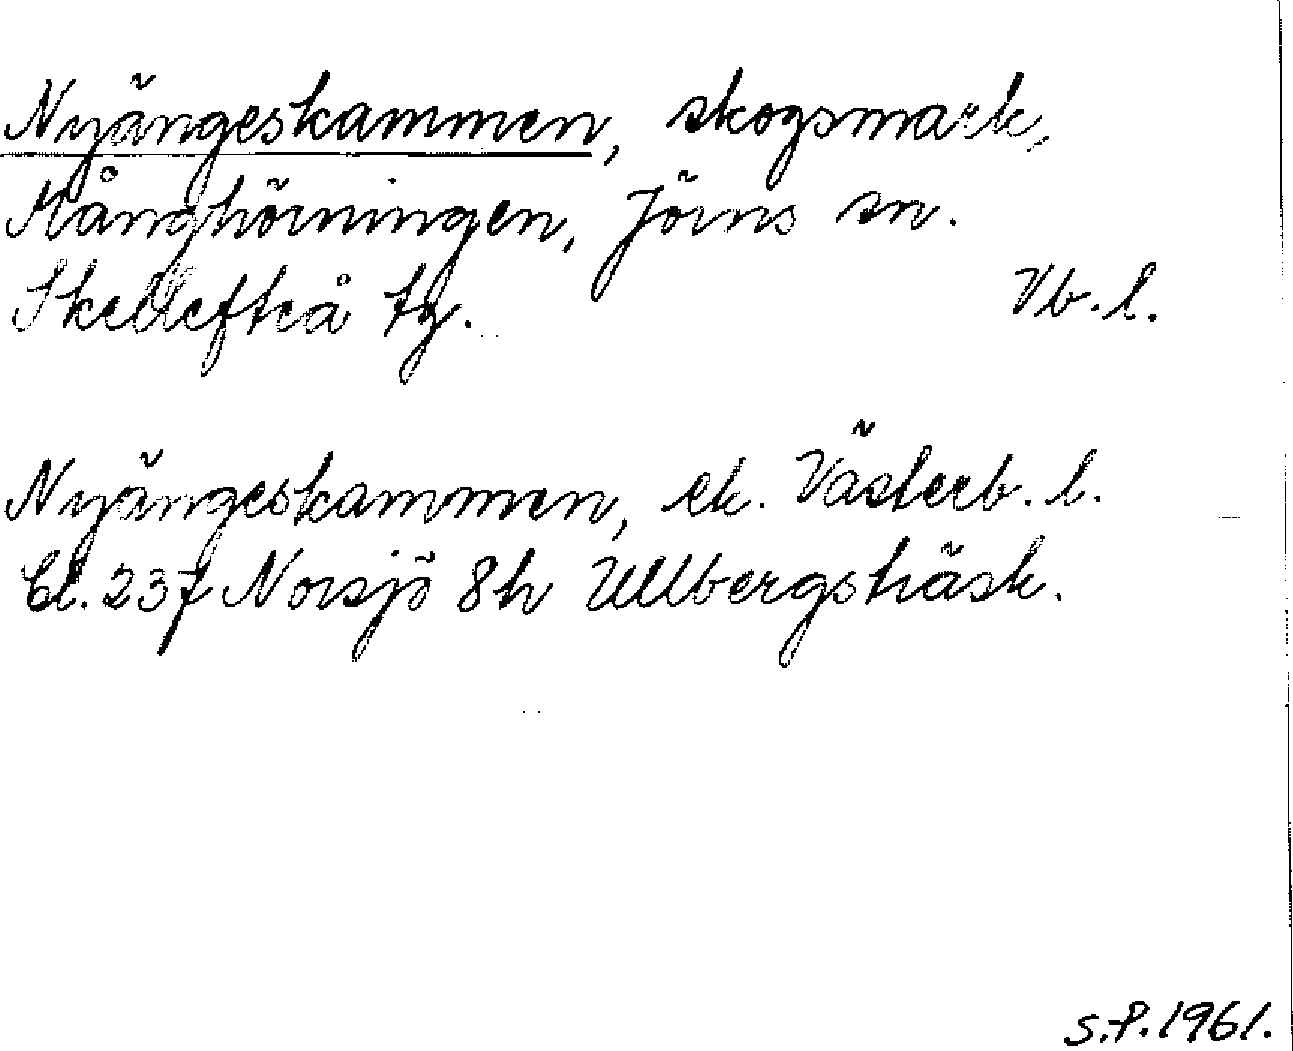 Nyängeskammen, skogsmark,
Månghörningen, Jörns sn.
Skellefteå tg. Vb. l.
Nyängeskammen, ek. Västerb. l.
Bl. 237 Norsjö 8h Ullbergsträsk.
S.P. 1961.